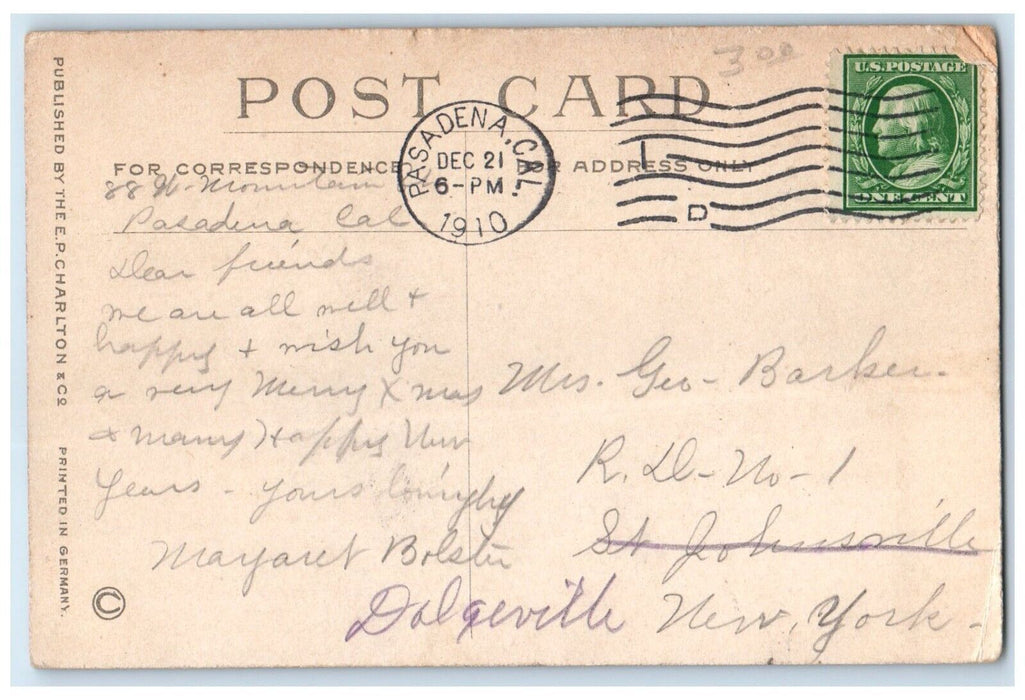 3 00
U.S. POSTAGE
ONE CENT
POST CARD
PASADENA, CAL.
DEC 21
6-PM.
1910
L
D
FOR CORRESPONDENCE
FOR ADDRESS ONLY
88 N. Mountain
Pasadena Cal
Dear friends
we are all well +
happy + wish you
a very Merry Xmas
+ many Happy New
Years - yours lovingly
Margaret Bolster
Mrs. Geo - Barker.
R. D - No - 1
St Johnsville
Dolgeville New York -
PUBLISHED BY THE E.P. CHARLTON & CO
PRINTED IN GERMANY.
©